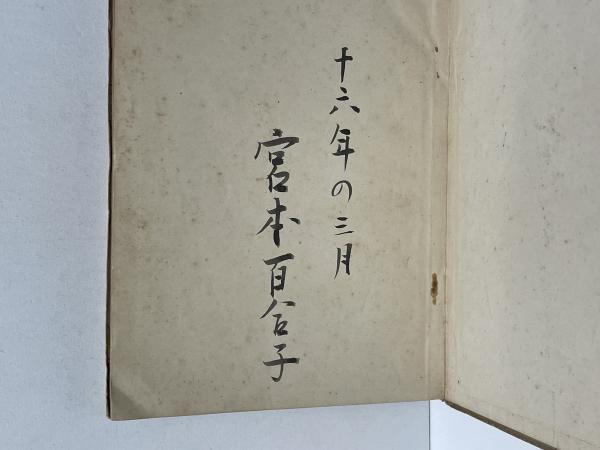 十六年の三月
宮本百合子